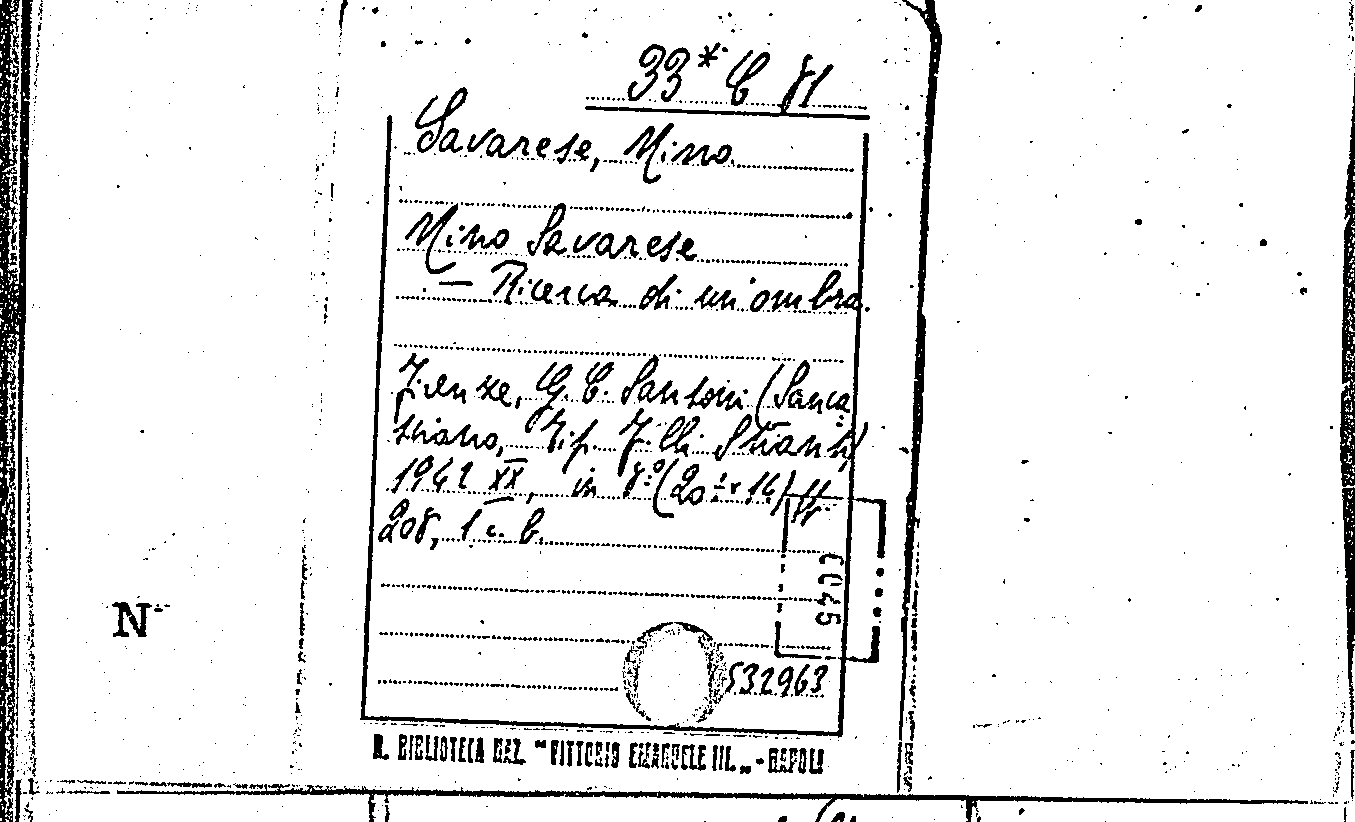 33* C 81
Savarese, Nino
Nino Savarese
— Ricerca di un'ombra.
Firenze, G. C. Sansoni (Sanca
sciano, Tip. F.lli Stianti)
1942 XX, in 8º (20 14) pp
208, 1 c. b.
0045
N
532963
R. BIBLIOTECA NAZ. "VITTORIO EMANUELE III." - NAPOLI